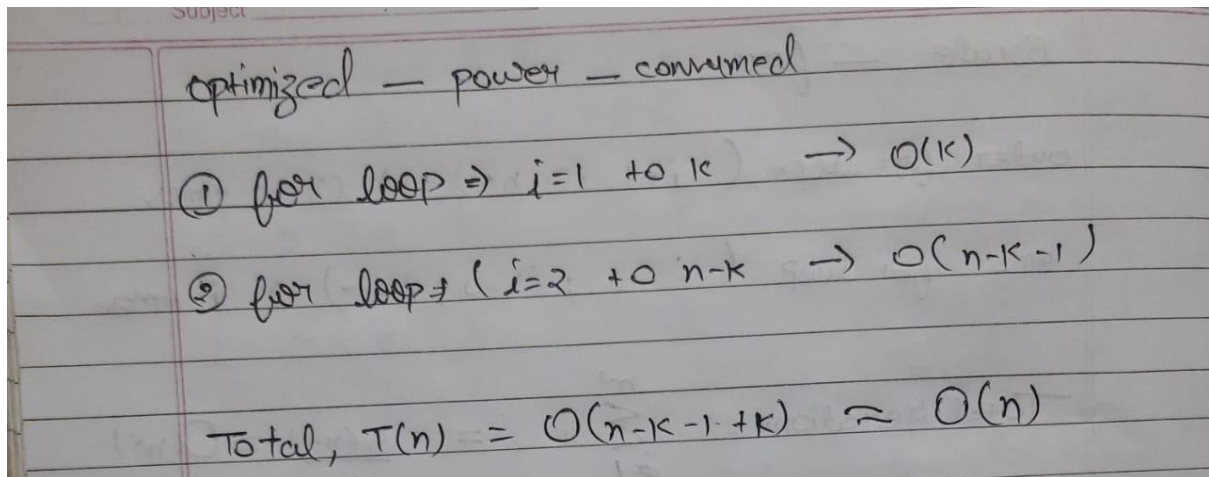 Subject
optimized - power - consumed
① for loop ⇒ i=1 to k → O(k)
② for loop ⇒ ( i=2 to n-k → O(n-k-1)
Total, T(n) = O(n-k-1+k) ≈ O(n)